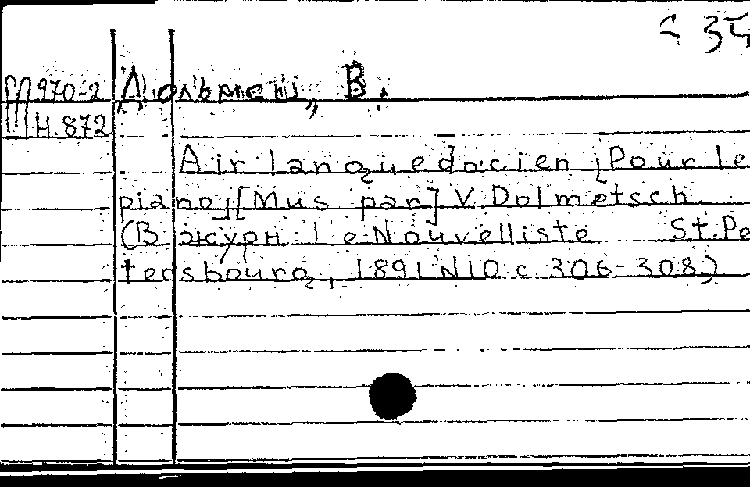 с 34
М 970-2 Дольметш, В.
Н.872
Air languedocien [Pour le
piano] [Mus par] V. Dolmetsch.
(В журн. Le Nouvelliste St.Pe
tersbourg, 1891 N10 с 306-308)